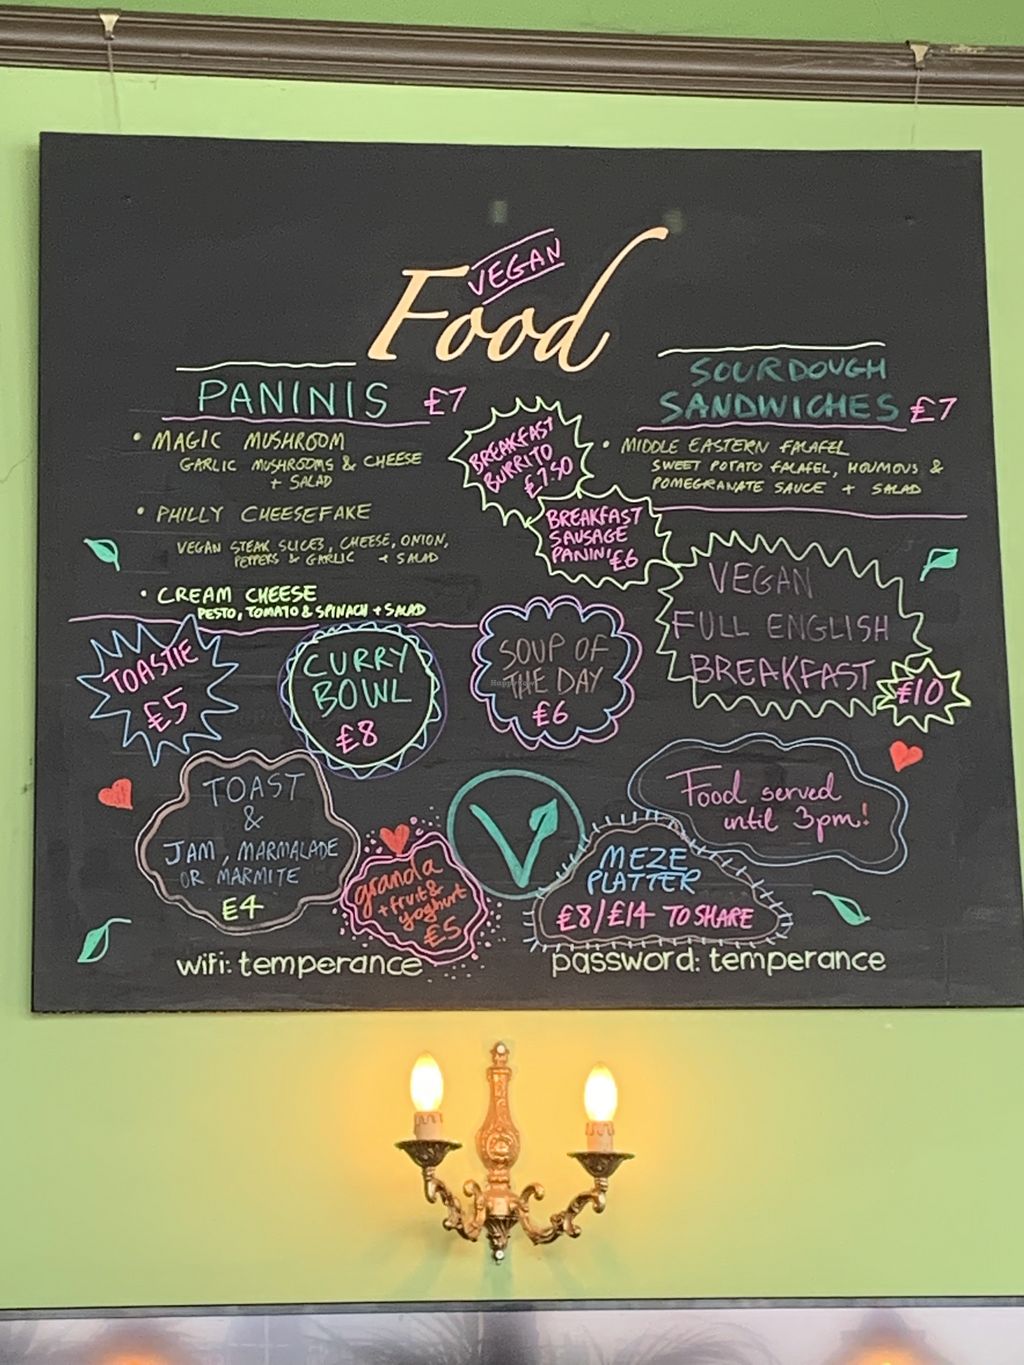 VEGAN
Food
PANINIS £7
• MAGIC MUSHROOM
GARLIC MUSHROOMS & CHEESE
+ SALAD
• PHILLY CHEESEFAKE
VEGAN STEAK SLICES, CHEESE, ONION,
PEPPERS & GARLIC + SALAD
• CREAM CHEESE
PESTO, TOMATO & SPINACH + SALAD
BREAKFAST
BURRITO
£7.50
BREAKFAST
SAUSAGE
PANINI £6
SOURDOUGH
SANDWICHES £7
• MIDDLE EASTERN FALAFEL
SWEET POTATO FALAFEL, HOUMOUS &
POMEGRANATE SAUCE + SALAD
VEGAN
FULL ENGLISH
BREAKFAST
£10
TOASTIE
£5
CURRY
BOWL
£8
SOUP OF
THE DAY
£6
TOAST
&
JAM, MARMALADE
OR MARMITE
£4
granola
+ fruit &
yoghurt
£5
V
Food served
until 3pm!
MEZE
PLATTER
£8/£14 TO SHARE
wifi: temperance
password: temperance